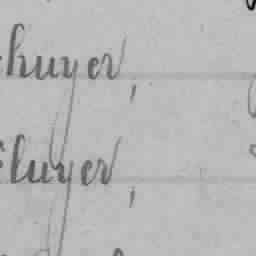 huyer,
luyer,